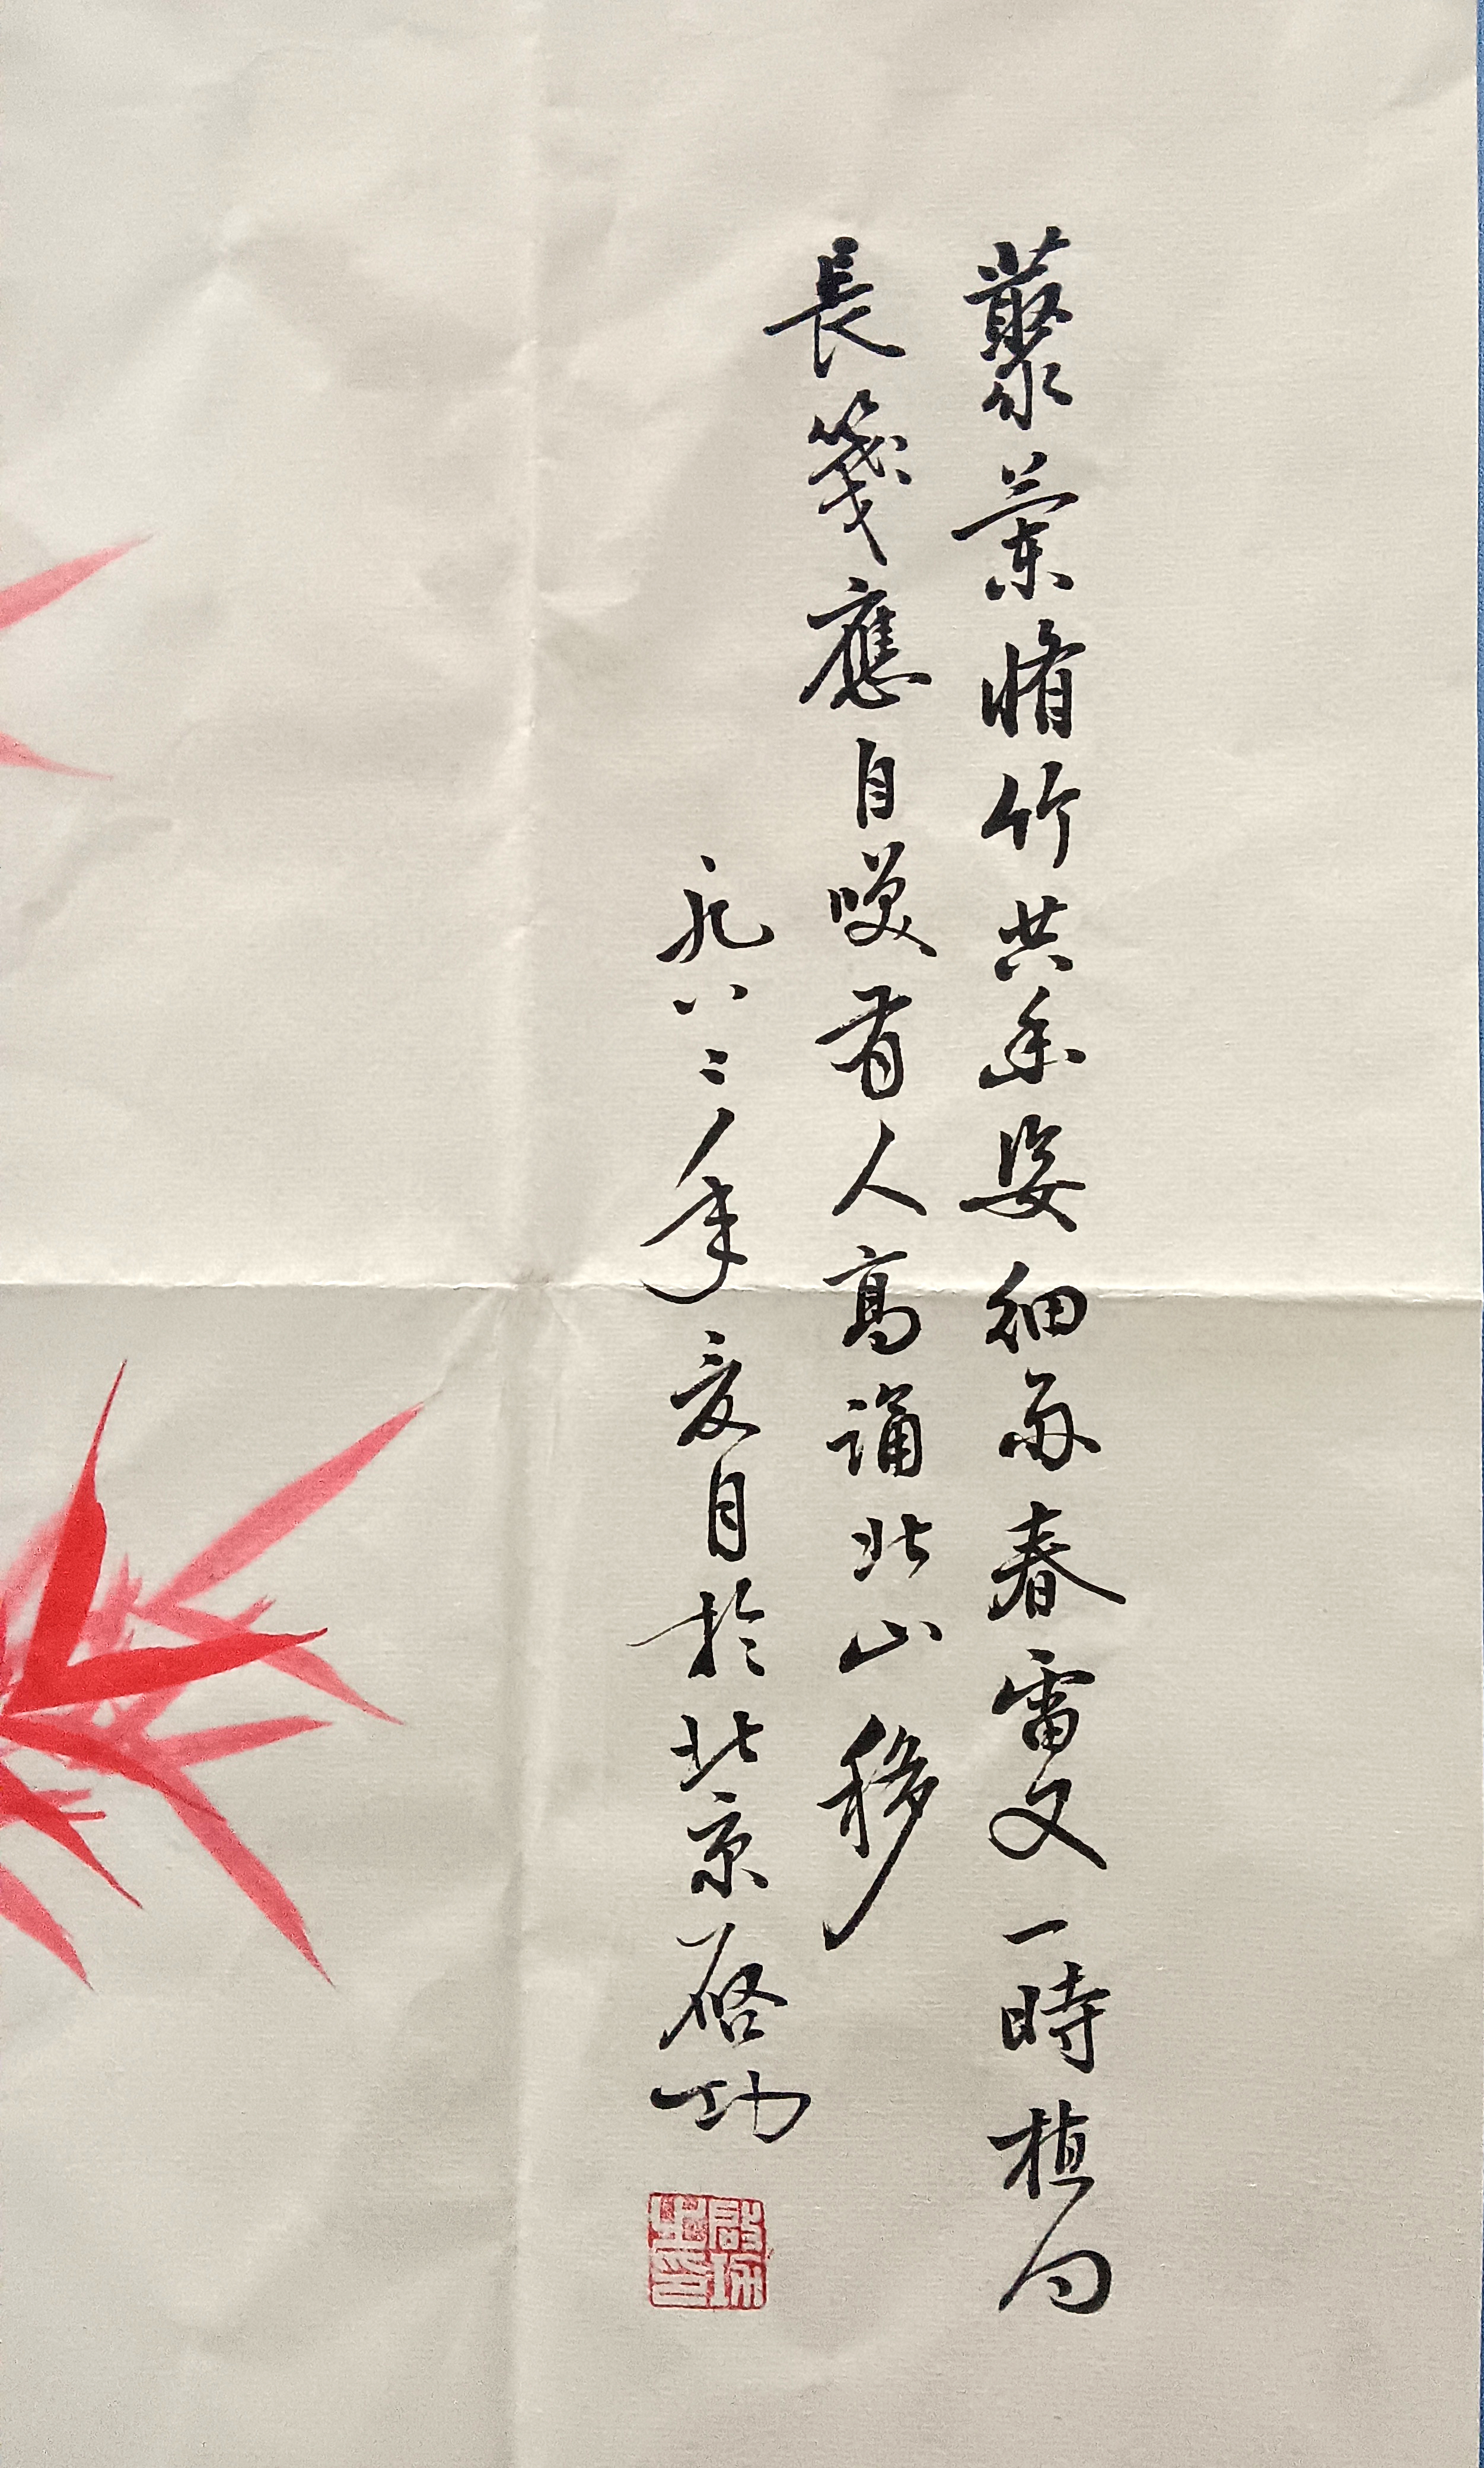 藂蘭脩竹共姿細雨春雷又一時植向
長箋應自嘆有人高誦北山移
一九八二年夏月於北京啓功